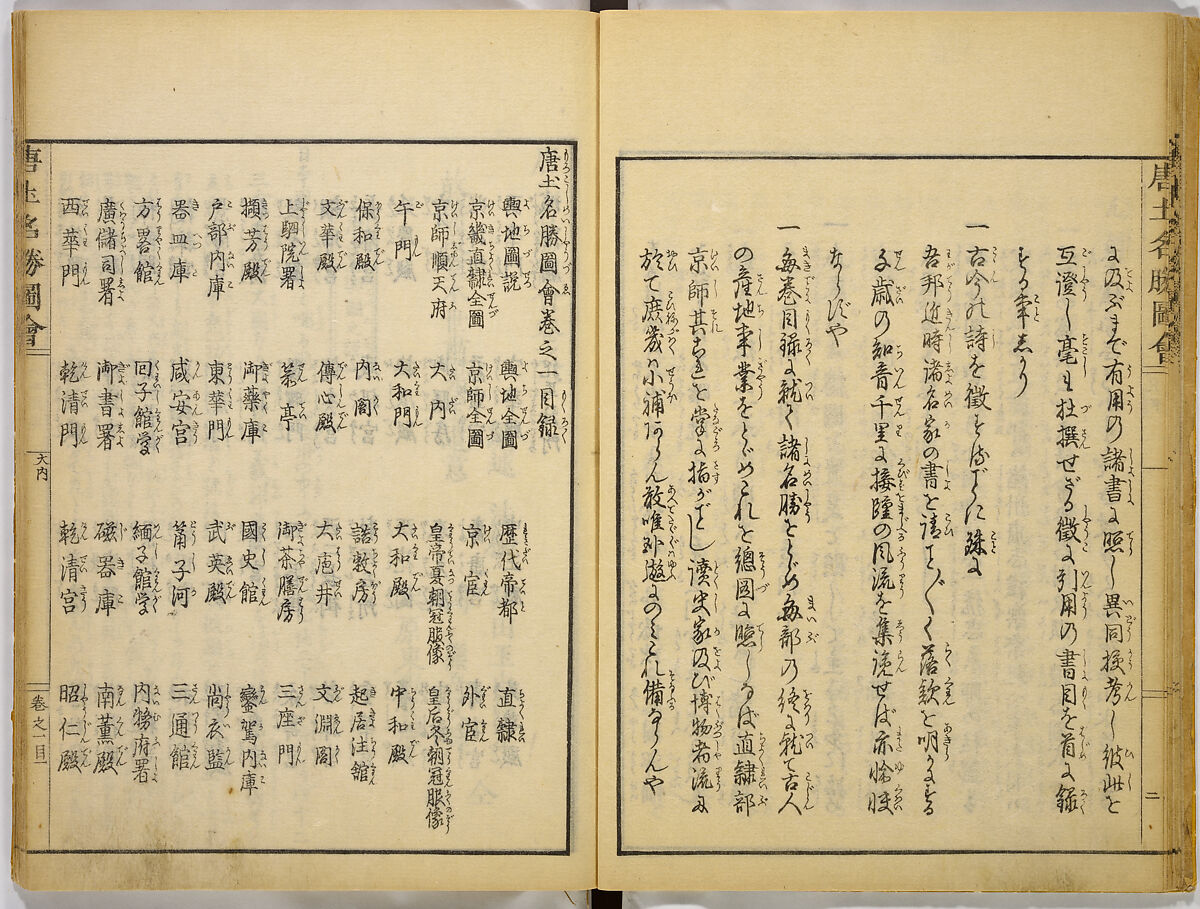 唐土名勝圖會
二
に及ぶまで有用の諸書に照し異同挍考し彼此を
互證し毫も杜撰せざる徴に引用の書目を首に録
する事しかり
一 古今の詩を徴するに
吾邦近時諸名家の書を請て落款を明かにする
千歳の知音千里に接踵の風流を集
ならずや
一 毎巻目録に就て諸名勝をとゞめ毎部の終に就て古人
の産地事業をとゞめこれを總圖に照しなば直隷部
京師其を掌に指がごとし讀史家及び博物者流に
於て庶幾小補
唐土名勝圖會卷之一目録
輿地圖説 輿地全圖 歴代帝都 直隷
京畿直隷全圖 京師全圖 京官 外官
京師順天府 大内 皇帝夏朝冠服像 皇后冬朝冠服像
午門 大和門 大和殿 中和殿
保和殿 内閣 誥敕房 起居注館
文華殿 傳心殿 大庖井 文淵閣
上駟院署 箭亭 御茶膳房 三座門
擷芳殿 御藥庫 國史館 鑾駕内庫
戸部内庫 東華門 武英殿 尚衣監
器皿庫 咸安宮 筩子河 三通館
方畧館 回子館學 緬子館學 内務府署
廣儲司署 御書署 磁器庫 南薰殿
西華門 乾清門 乾清宮 昭仁殿
唐土名勝圖會
大内
卷之一目一